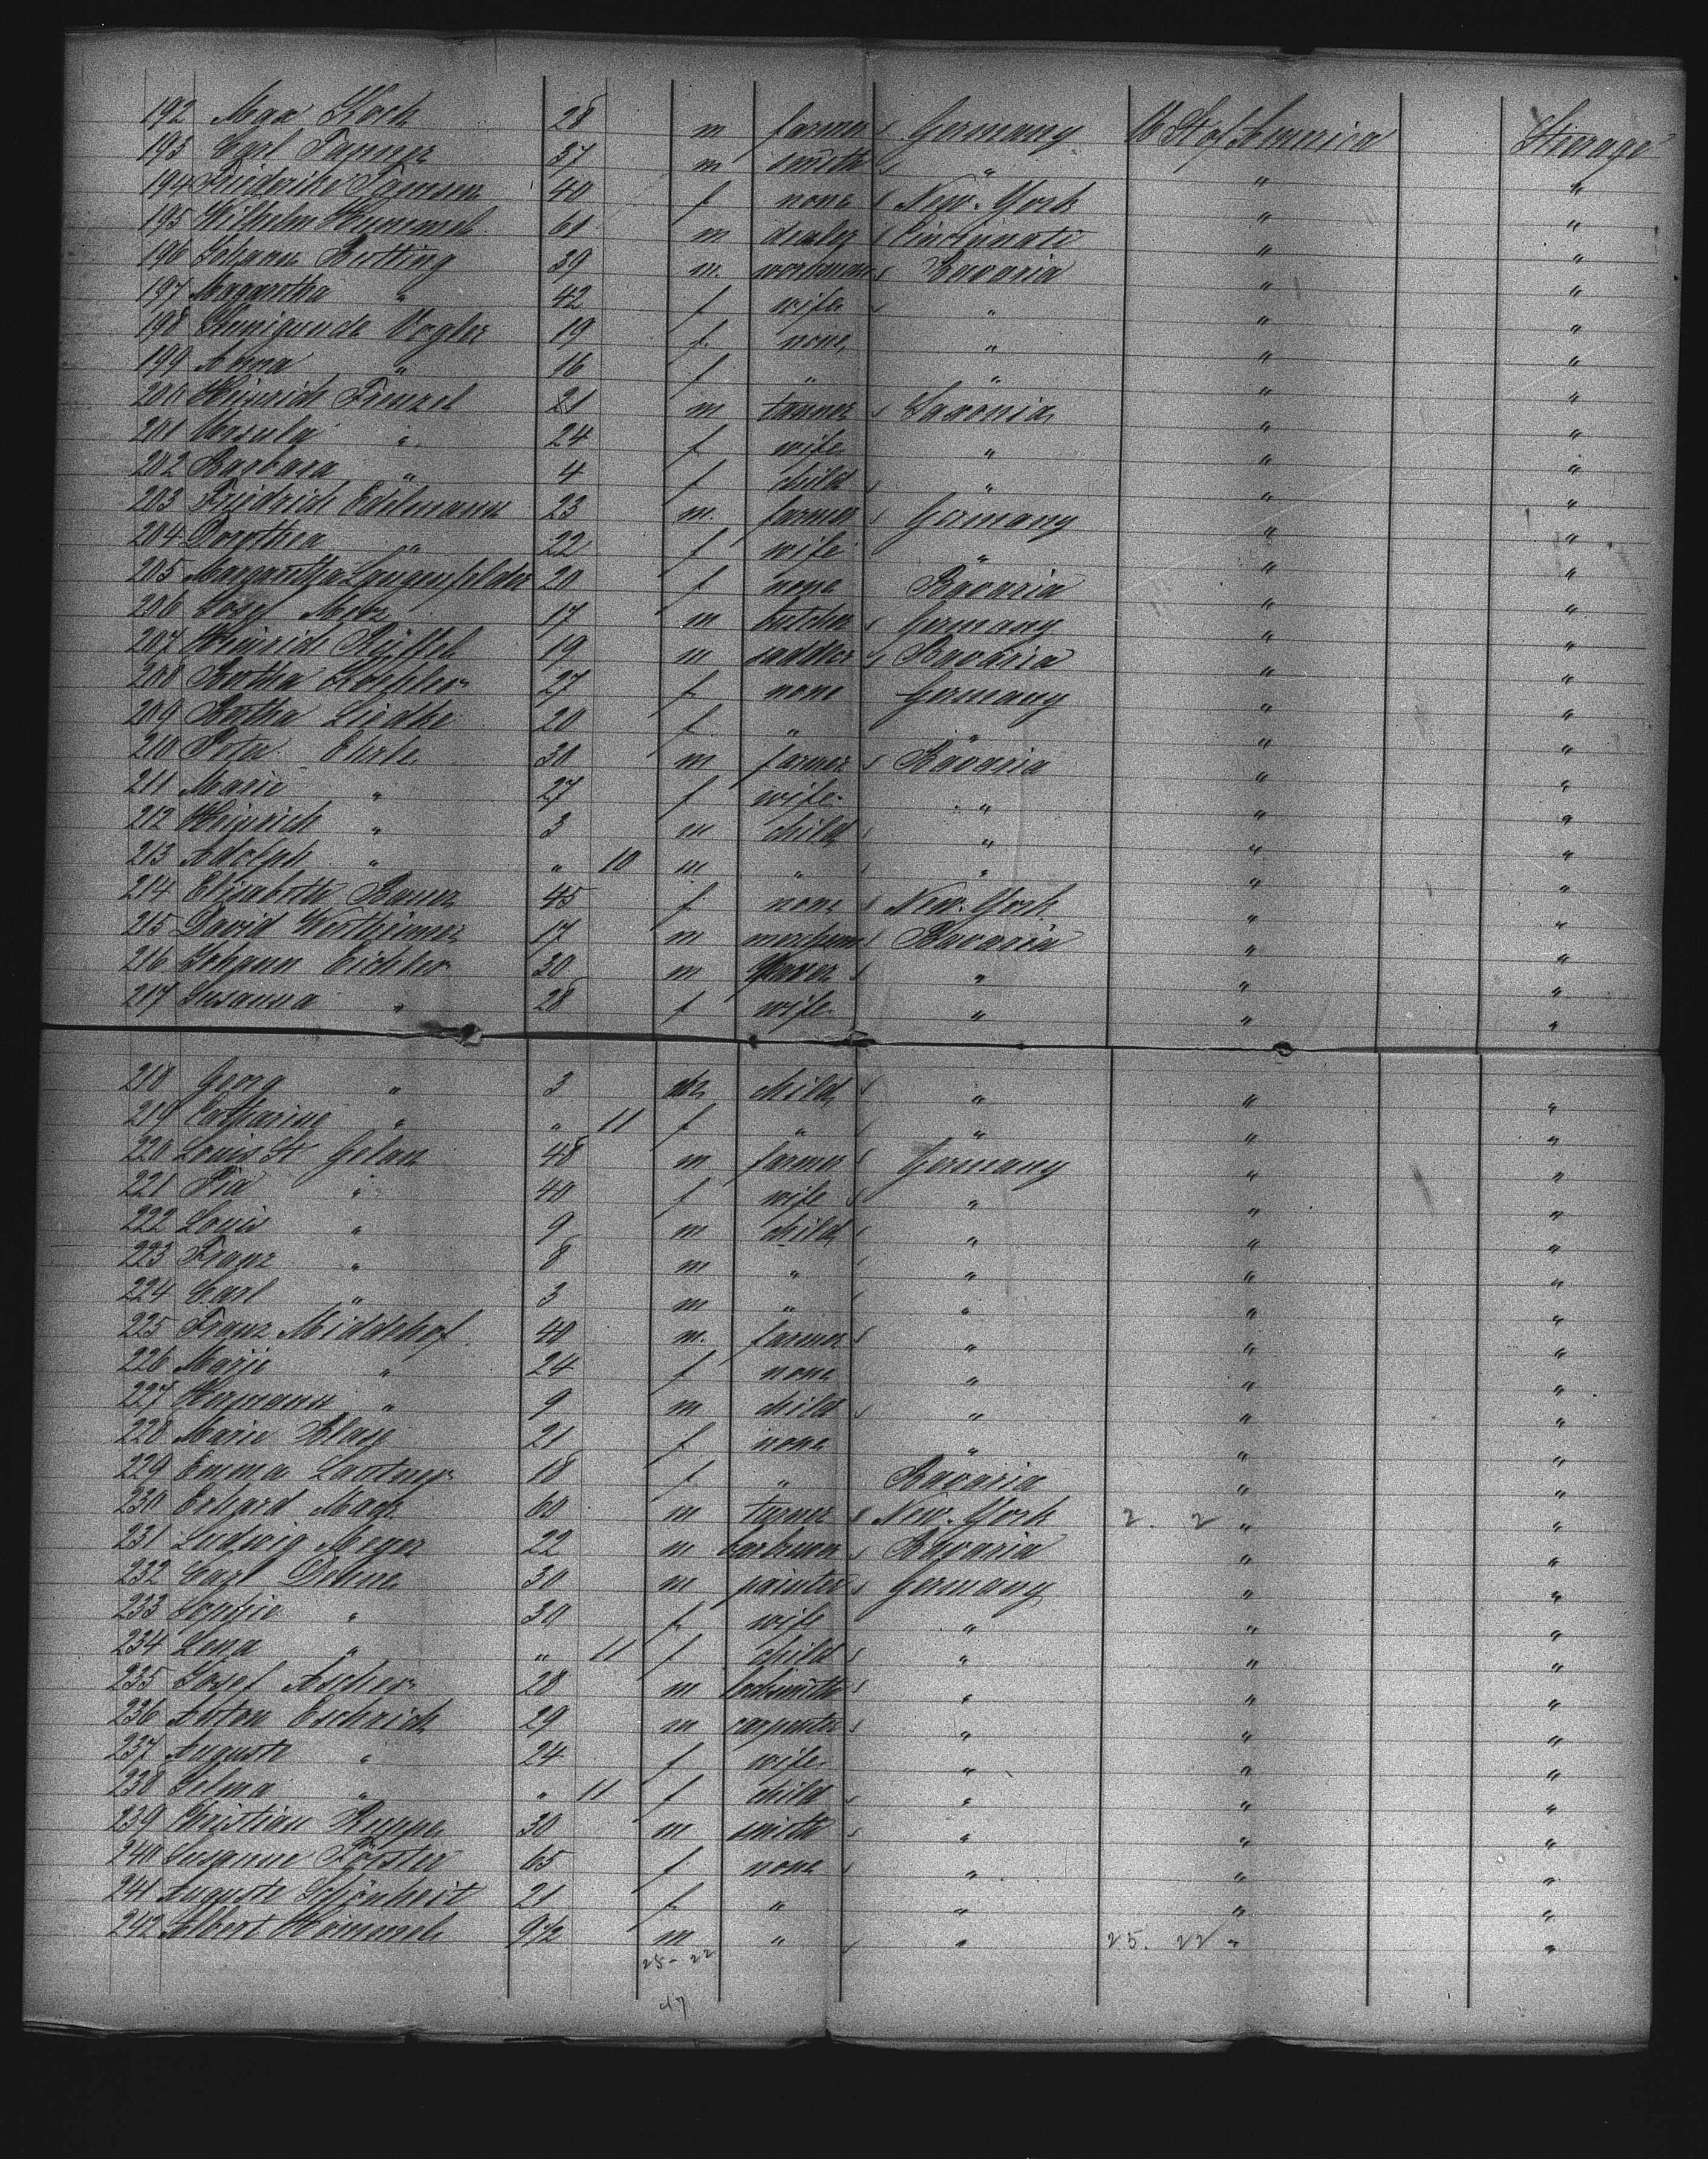 192 Max Koch 28 m farmer Germany U. St. of America Steerage
193 Carl 37 m smith " " "
194 Friederike 40 f none New-York " "
195 Wilhelm Hummel 61 m dealer Cincinnati " "
196 Johann 39 m. workman Bavaria " "
197 Magaretha " 42 f wife " " "
198 Kunigunde Vogler 19 f. none " " "
199 Anna " 16 f " " " "
200 Heinrich Frenzel 21 m tanner Saxonia " "
201 Ursula " 24 f wife " " "
202 Barbara " 4 f child " " "
203 Friedrich Edelmann 23 m. farmer Germany " "
204 Dorothea " 22 f wife " " "
205 Margaretha Langenfelder 20 f none Bavaria " "
206 Josef Metz 17 m butcher Germany " "
207 Heinrich 19 m saddler Bavaria " "
208 Bertha 27 f none Germany " "
209 Bertha Liedke 20 f " " " "
210 Peter 30 m farmer Bavaria " "
211 Marie " 27 f wife " " "
212 Heinrich " 3 m child " " "
213 Adolph " " 10 m " " " "
214 Elisabeth Bauer 45 f none New-York " "
215 David Wertheimer 17 m Bavaria " "
216 Johann Eichler 30 m " " "
217 Susanna " 28 f wife " " "
218 Georg " 3 m child " " "
219 Catharine " " 11 f " " " "
220 Louis St Gelan 48 m farmer Germany " "
221 Pia " 40 f wife " " "
222 Louis " 9 m child " " "
223 Franz " 8 m " " " "
224 Carl " 3 m " " " "
225 Franz Middelhof 40 m. farmer " " "
226 Marie " 24 f none " " "
227 Hermann " 9 m child " " "
228 Marie 21 f none " " "
229 Emma 18 f " Bavaria " "
230 Erhard Mack 60 m turner New-York 2. 2 " "
231 Ludwig Meyer 22 m Bavaria " "
232 Carl Dehne 30 m painter Germany " "
233 Sophie " 30 f wife " " "
234 Lena " " 11 f child " " "
235 Josef Ascher 28 m locksmith " " "
236 Anton Eschrich 29 m carpenter " " "
237 Auguste " 24 f wife " " "
238 Selma " " 11 f child " " "
239 Christian Reppe 30 m smith " " "
240 Susanne Förster 65 f none " " "
241 Auguste Schönheit 21 f " " " "
242 Albert Hummel 9 1/2 m " " 25. 22 " "
25 - 22
47